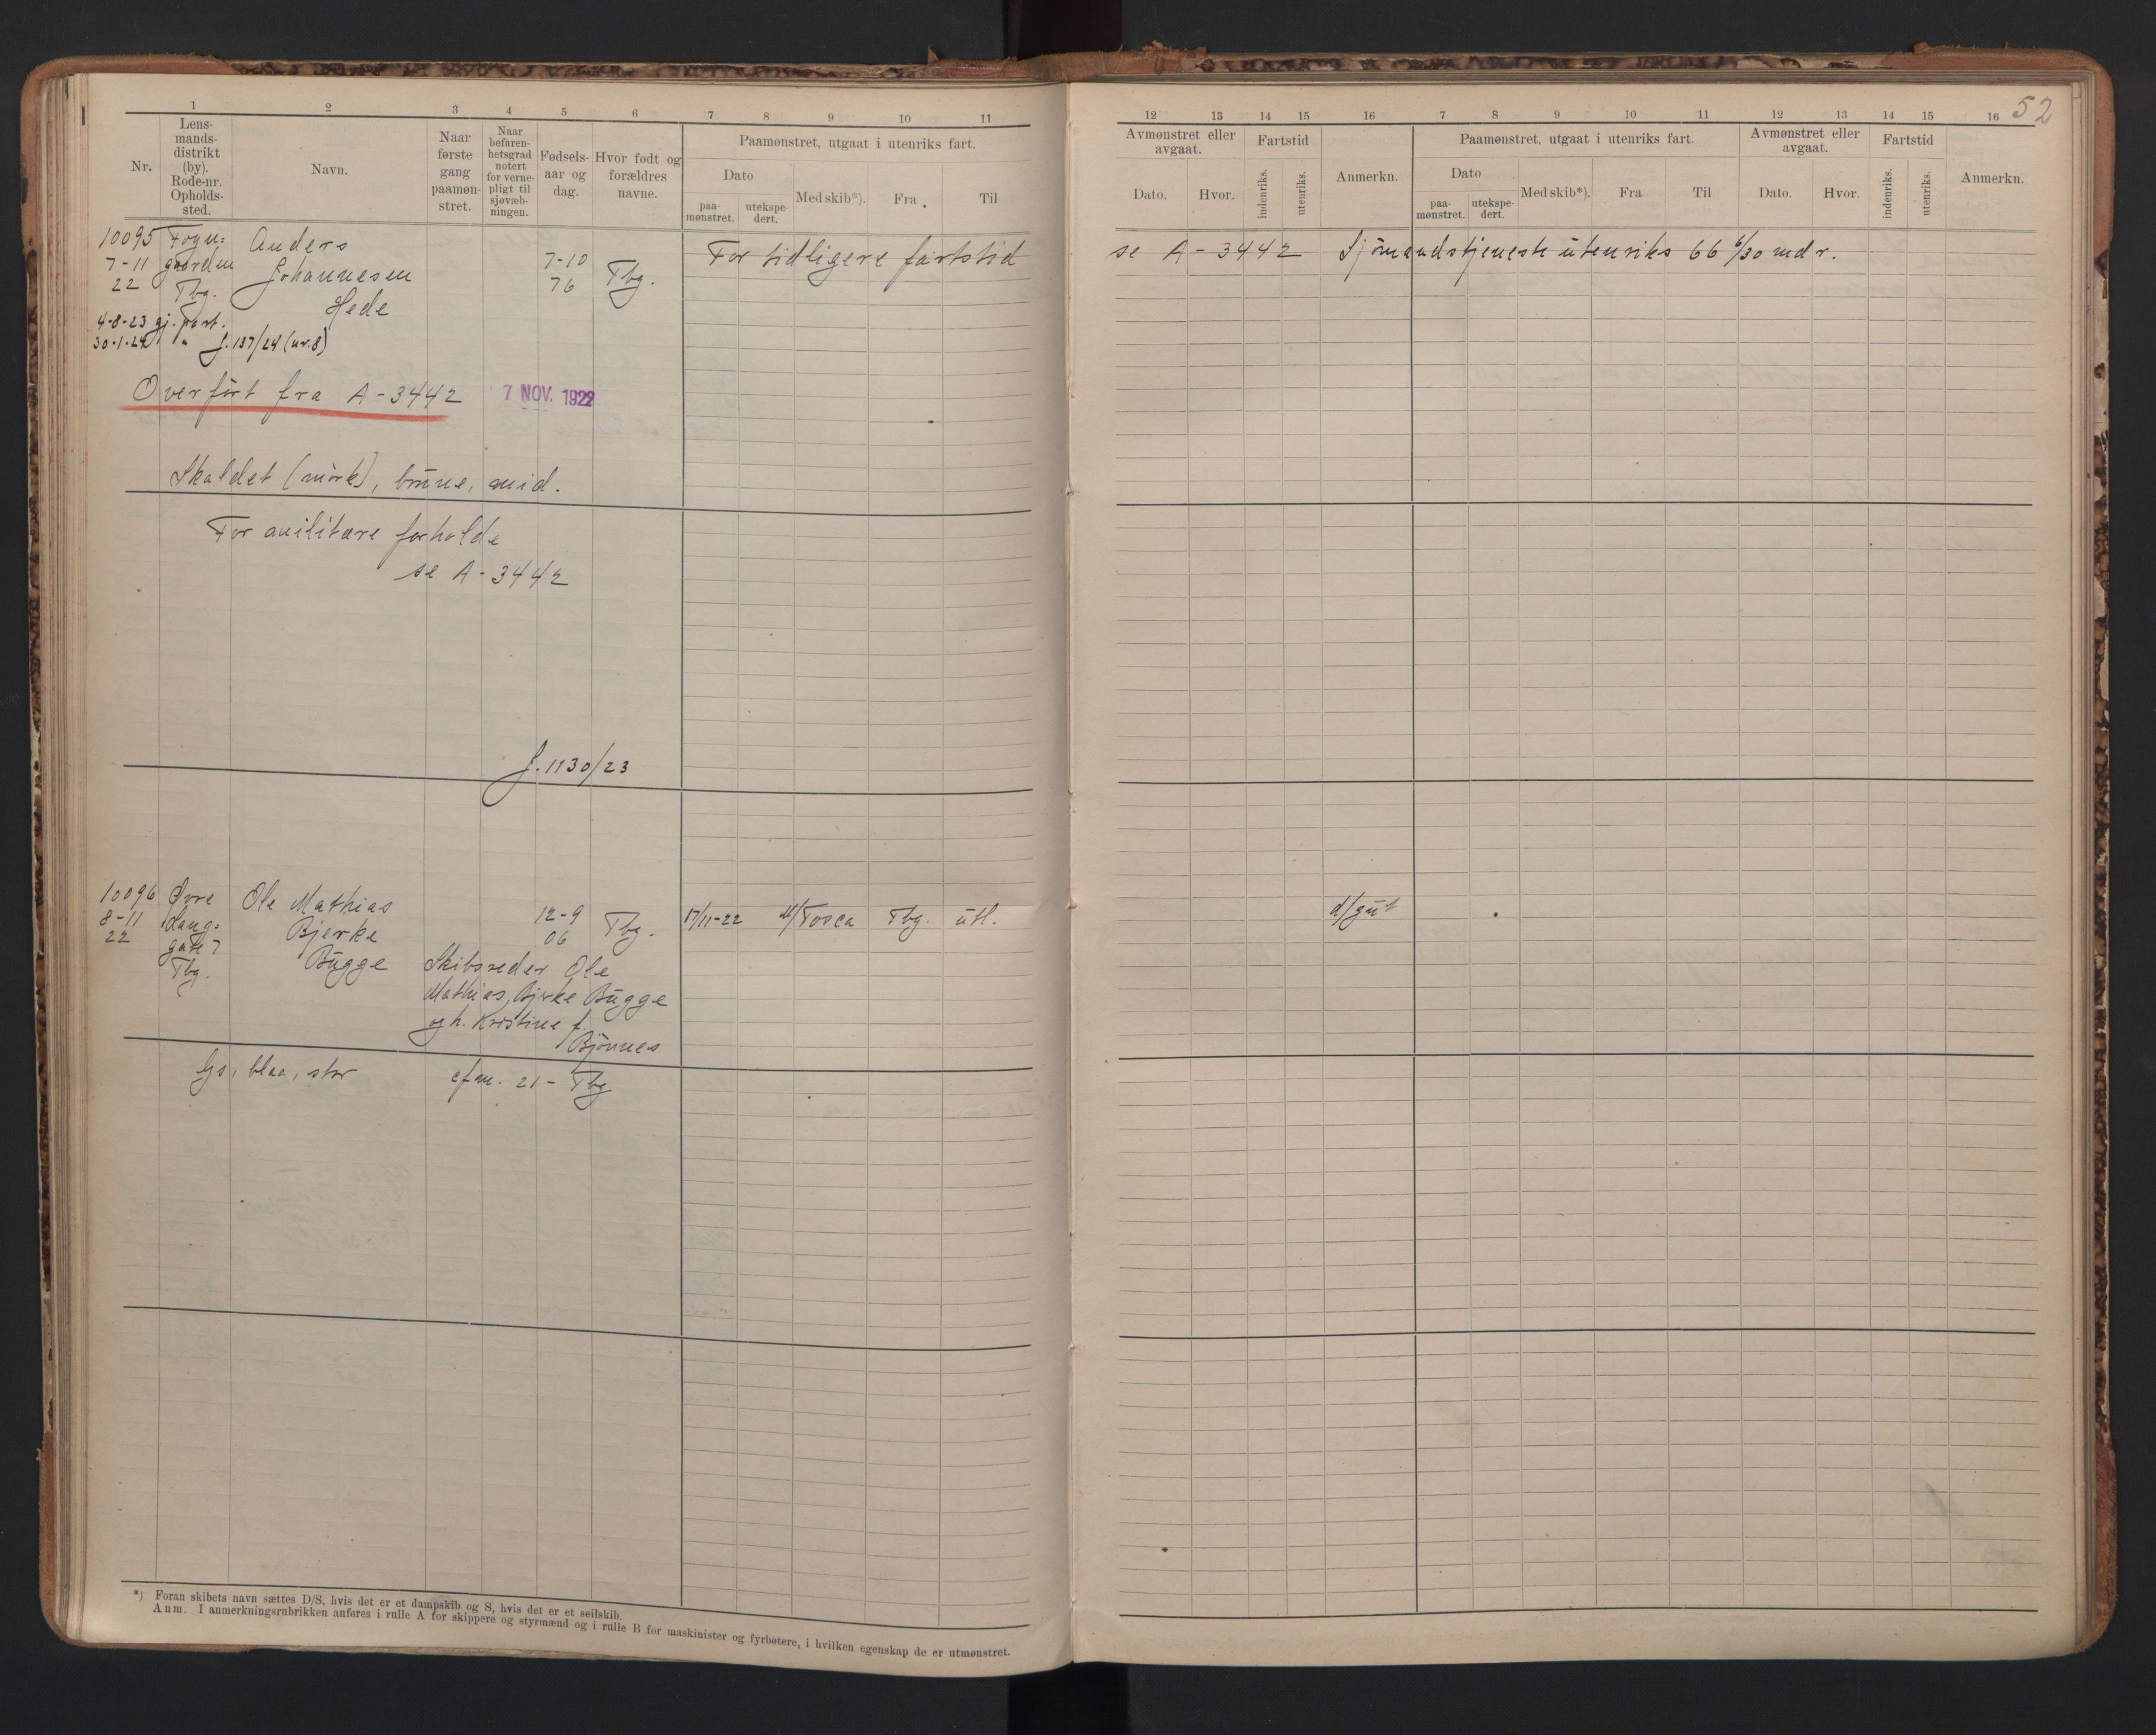 52
1 2 3 4 5 6 7 8 9 10 11
Nr.
Lens-
mands-
distrikt
(by).
Rode-nr.
Opholds-
sted.
Navn.
Naar
første
gang
paamøn-
stret.
Naar
befaren-
hetsgrad
notert
for verne-
pligt til
sjøvæb-
ningen.
Fødsels-
aar og
dag.
Hvor født og
forældres
navne.
Paamønstret, utgaat i utenriks fart.
Dato
paa-
mønstret.
utekspe-
dert.
Med skib*).
Fra
Til
12 13 14 15 16 7 8 9 10 11 12 13 14 15 16
Avmønstret eller
avgaat.
Dato. Hvor.
Fartstid
indenriks.
utenriks.
Anmerkn.
Paamønstret, utgaat i utenriks fart.
Dato
paa-
mønstret.
utekspe-
dert.
Med skib*).
Fra
Til
Avmønstret eller
avgaat.
Dato. Hvor.
Fartstid
indenriks.
utenriks.
Anmerkn.
10095
7-11
22
gaarden
Tbg.
Anders
Johannesen
Hede
7-10
76
Tbg.
For tidligere fartstid
se A-3442 Sjömandstjeneste utenriks 66 6/30 mdr.
4-8-23 gj. part.
30-1-24 " J. 137/24 (nr. 8)
Overfört fra A-3442 7 NOV. 1922
Skaldet (mörk), brune, mid.
For militære forholde
se A-3442
J. 1130/23
10096
8-11
22
Øvre
Lang-
gate 7
Tbg.
Ole Mathias
Bjerke
Bugge
12-9
06
Tbg.
17/11-22 Tosca Tbg. utl.
d/gut
Skibsreder Ole
Mathias Bjerke Bugge
og h. Kristine f.
Bjönnes
lys, blaa, stor
efm. 21 - Tbg
*) Foran skibets navn sættes D/S, hvis det er et dampskib og S, hvis det er et seilskib.
Anm. I anmerkningsrubrikken anføres i rulle A for skippere og styrmænd og i rulle B for maskinister og fyrbøtere, i hvilken egenskap de er utmønstret.